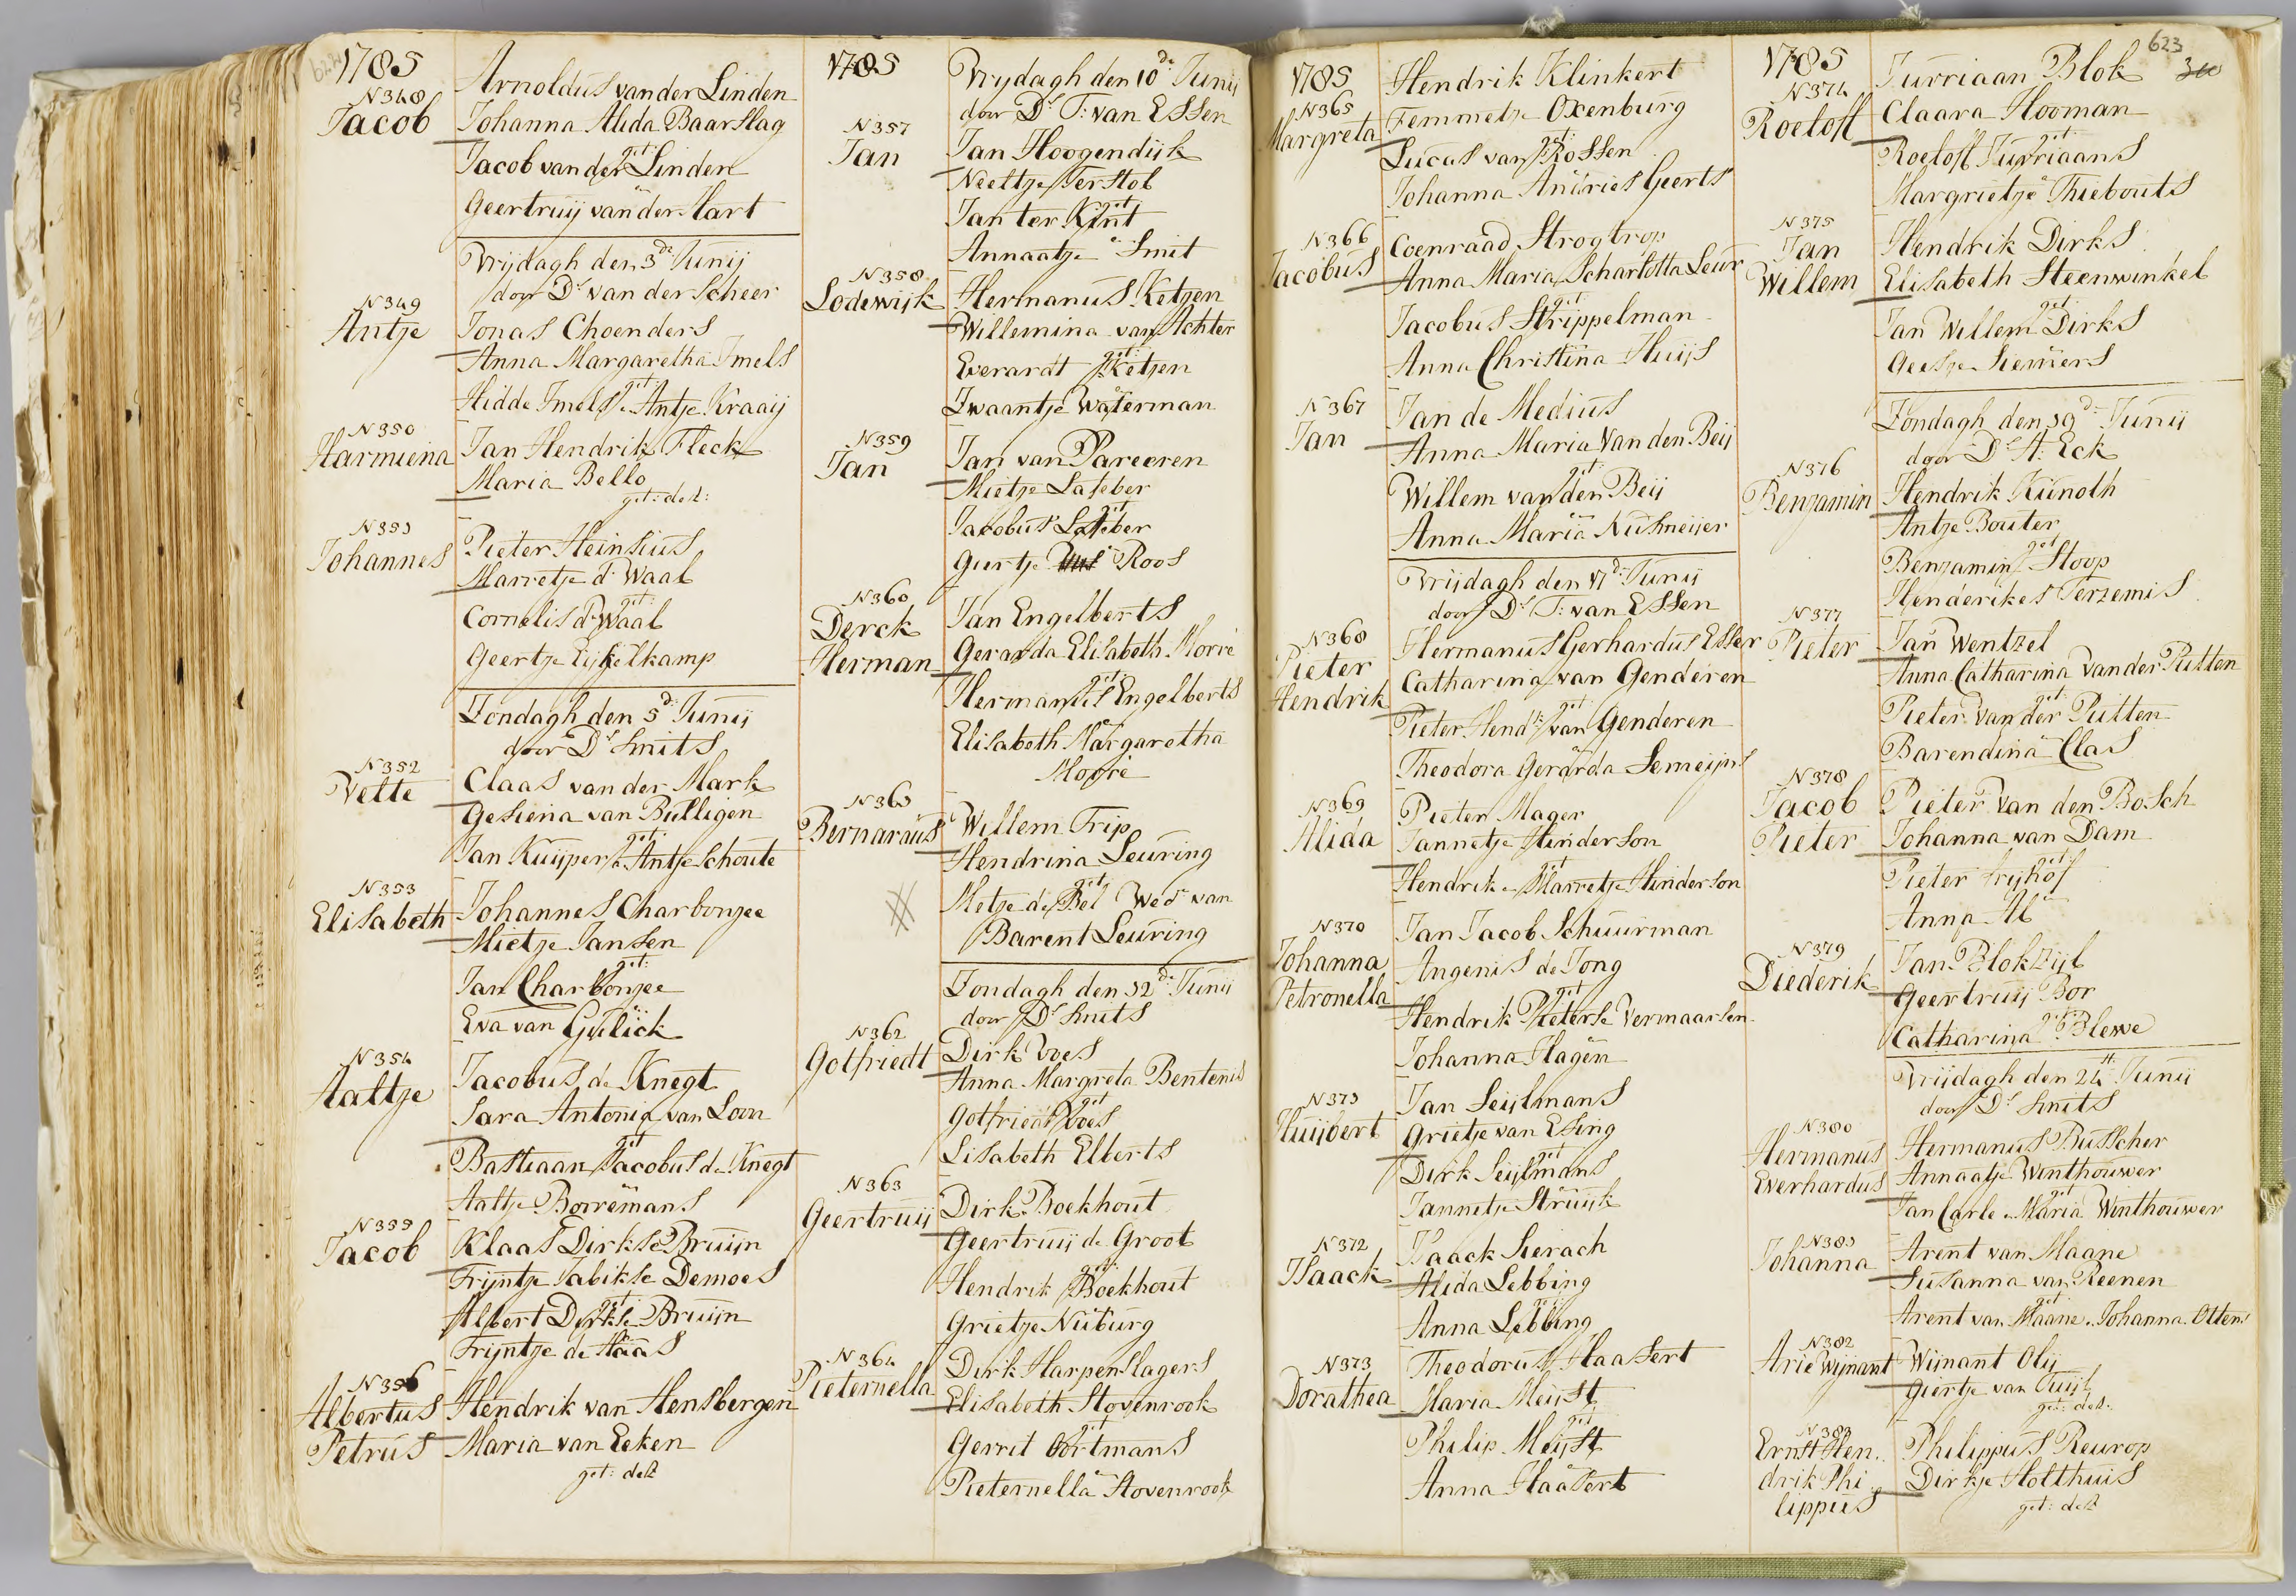 1785
N348
Jacob
Arnoldus van der Linden
Johanna Alida Baarslag
get:
Jacob van der Linden
Geertruij van der Hart
Vrijdagh den 3de Junij
door Ds van der Scheer
N349
Antje
Jonas Choenders
Anna Margaretha Imels
get:
Hidde Imels & Antje Kraaij
N350
Harmiena
Jan Hendrik Fleck
Maria Bello
get: de #:
N351
Johannes
Pieter Heinsius
Marretje d' Waal
get:
Cornelis d' Waal
Geertje Eijkelkamp
Zondagh den 5de Junij
door Ds Smits
N352
Vette
Claas van der Mark
Gesiena van Bulligen
get:
Jan Kuijper & Antje Schoute
N353
Elisabeth
Johannes Charbonjee
Mietje Jansen
get:
Jan Charbonjee
Eva van Gulick
N354
Aaltje
Jacobus de Knegt
Sara Antonia van Loon
get
Bastiaan Jacobus de Knegt
Aaltje Borremans
N355
Jacob
Klaas Dirkse Bruijn
Trijntje Jabikse Demoes
get:
Albert Dirkse Bruijn
Trijntje de Haas
N356
Albertus
Petrus
Hendrik van Hensbergen
Maria van Eeken
get: de #
1785
Vrijdagh den 10de Junij
door Ds T: van Essen
N357
Jan
Jan Hoogendijk
Neeltje Terstol
get
Jan ter Kint
Annaatje Smit
N358
Lodewijk
Hermanus Ketjen
Willemina van Achter
get:
Everardt Ketjen
Zwaantje Waterman
N359
Jan
Jan van Pareeren
Mietje Lafeber
get
Jacobus Lafeber
Geertje Roos
N360
Derck
Herman
Jan Engelberts
Geranda Elisabeth Morre
get:
Herman Engelberts
Elisabeth Margaretha
Morre
N361
Bernardus
Willem Trip
Hendrina Leuring
get:
Metje de Bel Wed van
Barent Leuring
Zondagh den 12de Junij
door Ds Smits
N362
Gotfriedt
Dirk Voes
Anna Margreta Bentenis
get
Gotfriedt Voes
Lisabeth Elberts
N363
Geertruij
Dirk Boekhout
Geertruij de Groot
get:
Hendrik Boekhout
Grietje Nuburg
N364
Pieternella
Dirk Harpenslagers
Elisabeth Stovenrook
get
Gerrit Oortmans
Pieternella Stovenrook
1785
N365
Margreta
Hendrik Klinkert
Femmetje Oxenburg
get:
Lucus van Rossen
Johanna Andries Geerts
N366
Jacobus
Coenraad Strogtrop
Anna Maria Scharlotta Leur
get:
Jacobus Strippelman
Anna Christina Huijs
N367
Jan
Jan de Medius
Anna Maria Van den Beij
get:
Willem van den Beij
Anna Maria Nusmeijer
Vrijdagh den 17de Junij
door Ds T: van Essen
N368
Pieter
Hendrik
Hermanus Gerhardus Esser
Catharina van Genderen
get
Pieter Hendk van Genderen
Theodora Gerarda Semeijns
N369
Alida
Pieter Mager
Jannetje Hinderson
get
Hendrik & Marretje Hinderson
N370
Johanna
Petronella
Jan Jacob Schuurman
Angenis de Jong
get
Hendrik Pieterse Vermaarsen
Johanna Hagen
N371
Huijbert
Jan Seijlmans
Grietje van Esing
get
Dirk Seijlmans
Jannetje Struijk
N372
Isaack
Isaack Sierach
Alida Lebbing
get:
Anna Lebbing
N373
Dorathea
Theodorus Haasert
Maria Meijst
get
Philip Meijst
Anna Haasert
1785
623
N374
Roeloff
Jurriaan Blok
Claara Hooman
get:
Roeloff Jurriaans
Margrietje Thiebouts
N375
Jan
Willem
Hendrik Dirks
Elisabeth Steenwinkel
get:
Jan Willem Dirks
Geesje Siemers
Zondagh den 19de Junij
door Ds H: Eck
N376
Benjamin
Hendrik Kunoth
Antje Bouter
get
Benjamin Stoop
Henderikes Terzemis
N377
Pieter
Jan Wentzel
Anna Catharina Van der Putten
get:
Pieter van der Putten
Barendina Clas
N378
Jacob
Pieter
Pieter Van den Bosch
Johanna van Dam
get:
Pieter Frijhof
Anna Al
N379
Diederik
Jan Blokzijl
Geertruij Bor
get:
Catharina Blewe
Vrijdagh den 24st Junij
door Ds Smits
N380
Hermanus
Everhardus
Hermanus Busscher
Annaatje Winthouwer
get:
Jan Carle & Maria Winthouwer
N381
Johanna
Arent van Maane
Susanna van Reenen
get:
Arent van Maane & Johanna Ottens
N382
Arie Wijnant
Wijnant Olij
Giertje van Tuijl
get: de #:
N383
Ernst Hen.
drik Phi
lippus
Philippus Reurop
Dirkje Holthuis
get: de #